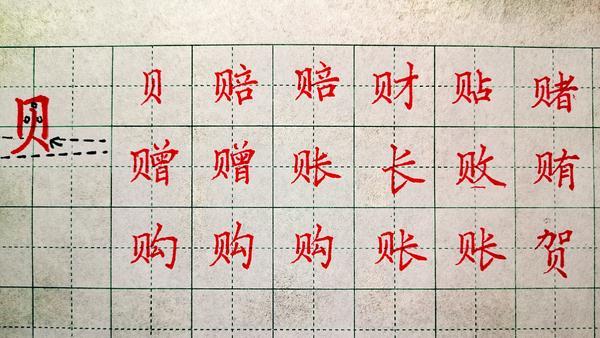 贝
贝赔赔财贴赌
赠赠账长败贿
购购购账账贺